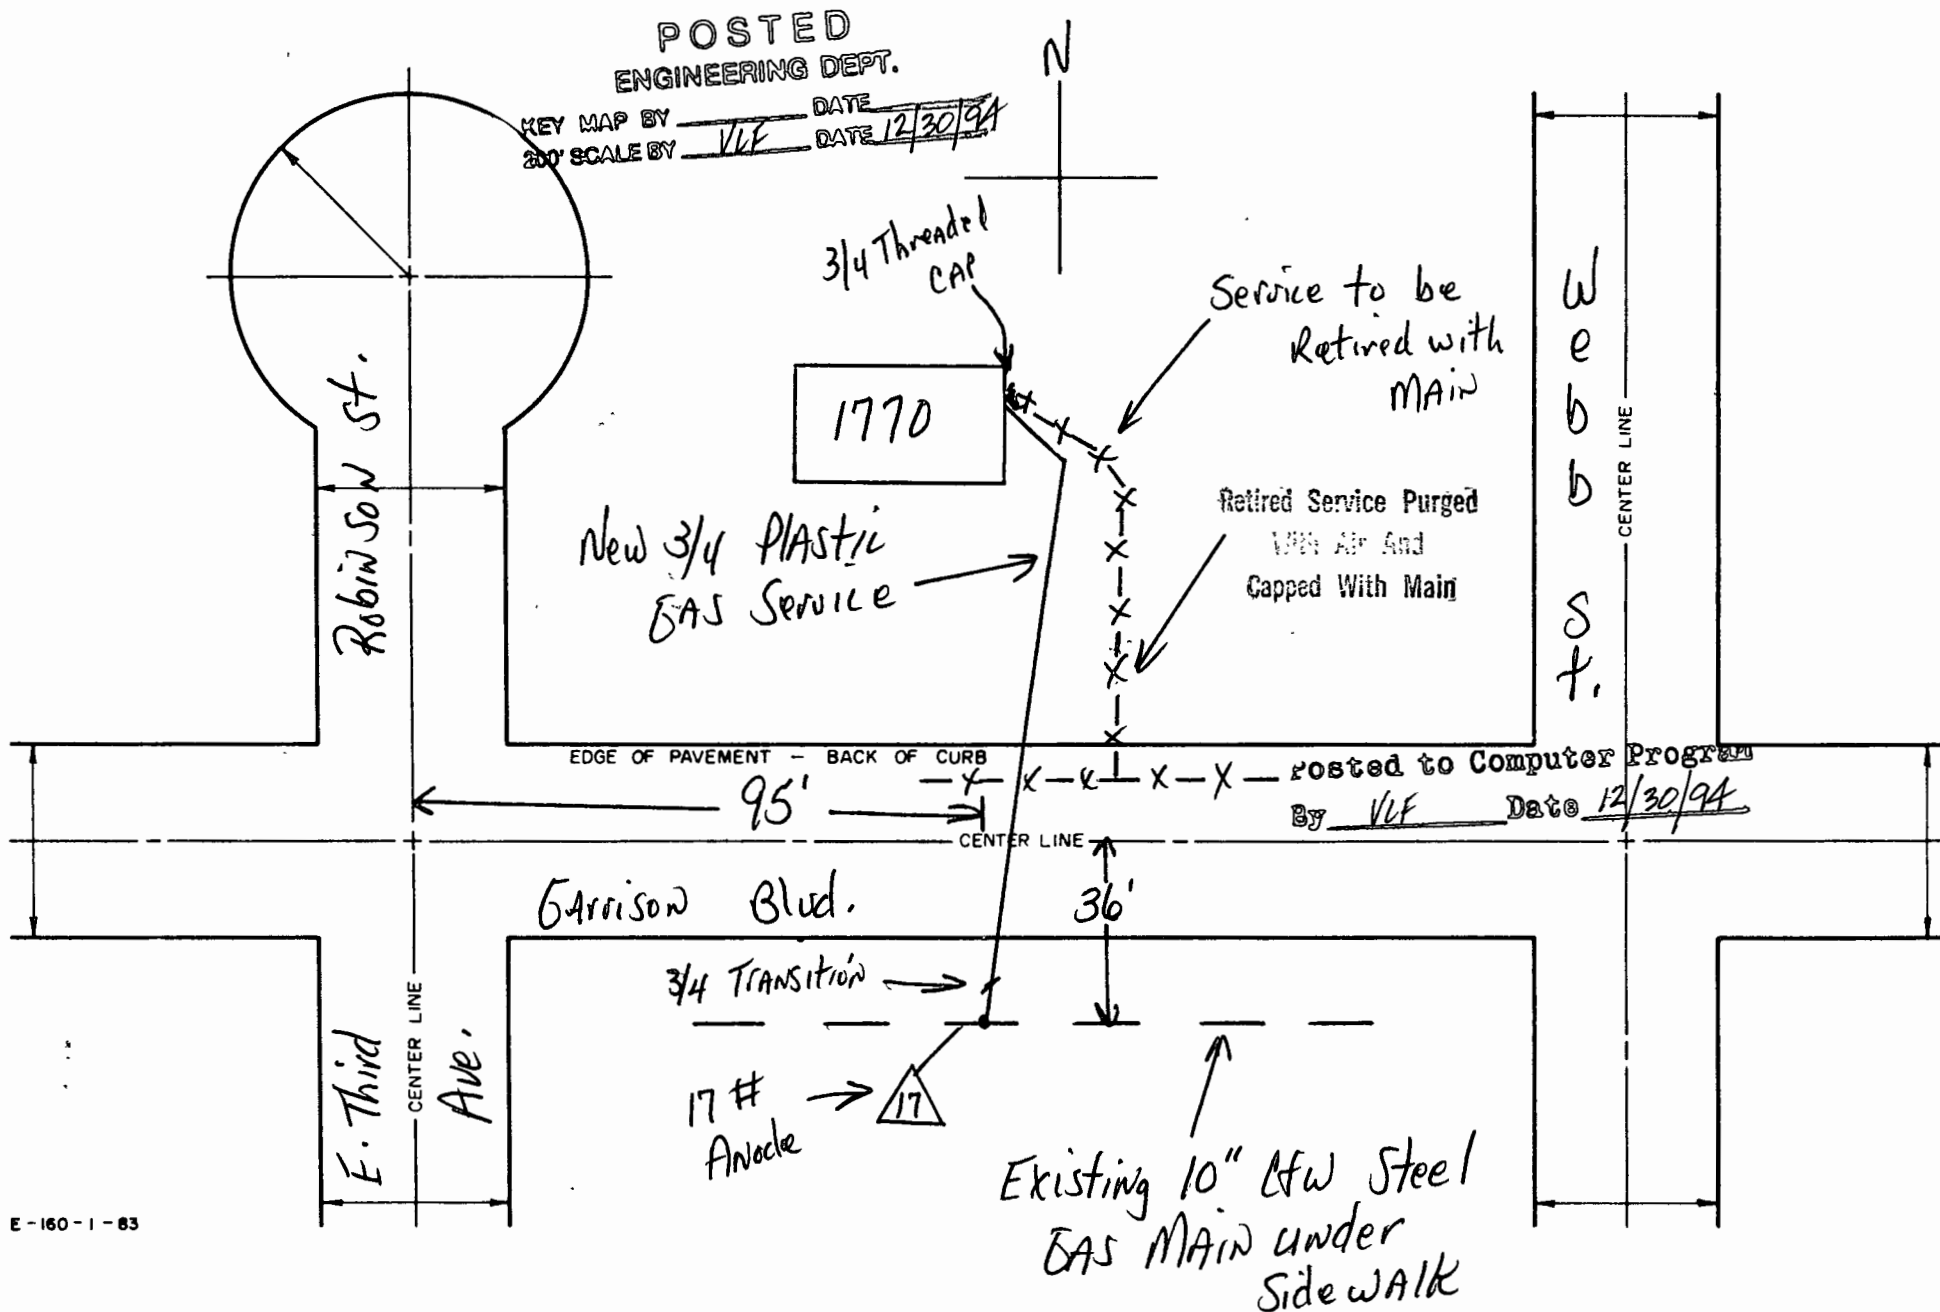 POSTED
ENGINEERING DEPT.
KEY MAP BY DATE
200' SCALE BY VLF DATE 12/30/94
N
3/4 Threaded
CAP
Service to be
Retired with
MAIN
1770
Webb St.
CENTER LINE
Robinson St.
New 3/4 PLAStic
GAS Service
Retired Service Purged
With Air And
Capped With Main
EDGE OF PAVEMENT - BACK OF CURB
Posted to Computer Program
By VLF Date 12/30/94
95'
CENTER LINE
GArrison Blvd.
36'
3/4 TRANSItion
E. Third
CENTER LINE
Ave.
17 #
Anode
17
Existing 10" C&W Steel
GAS MAIN under
SidewALK
E-160-1-83